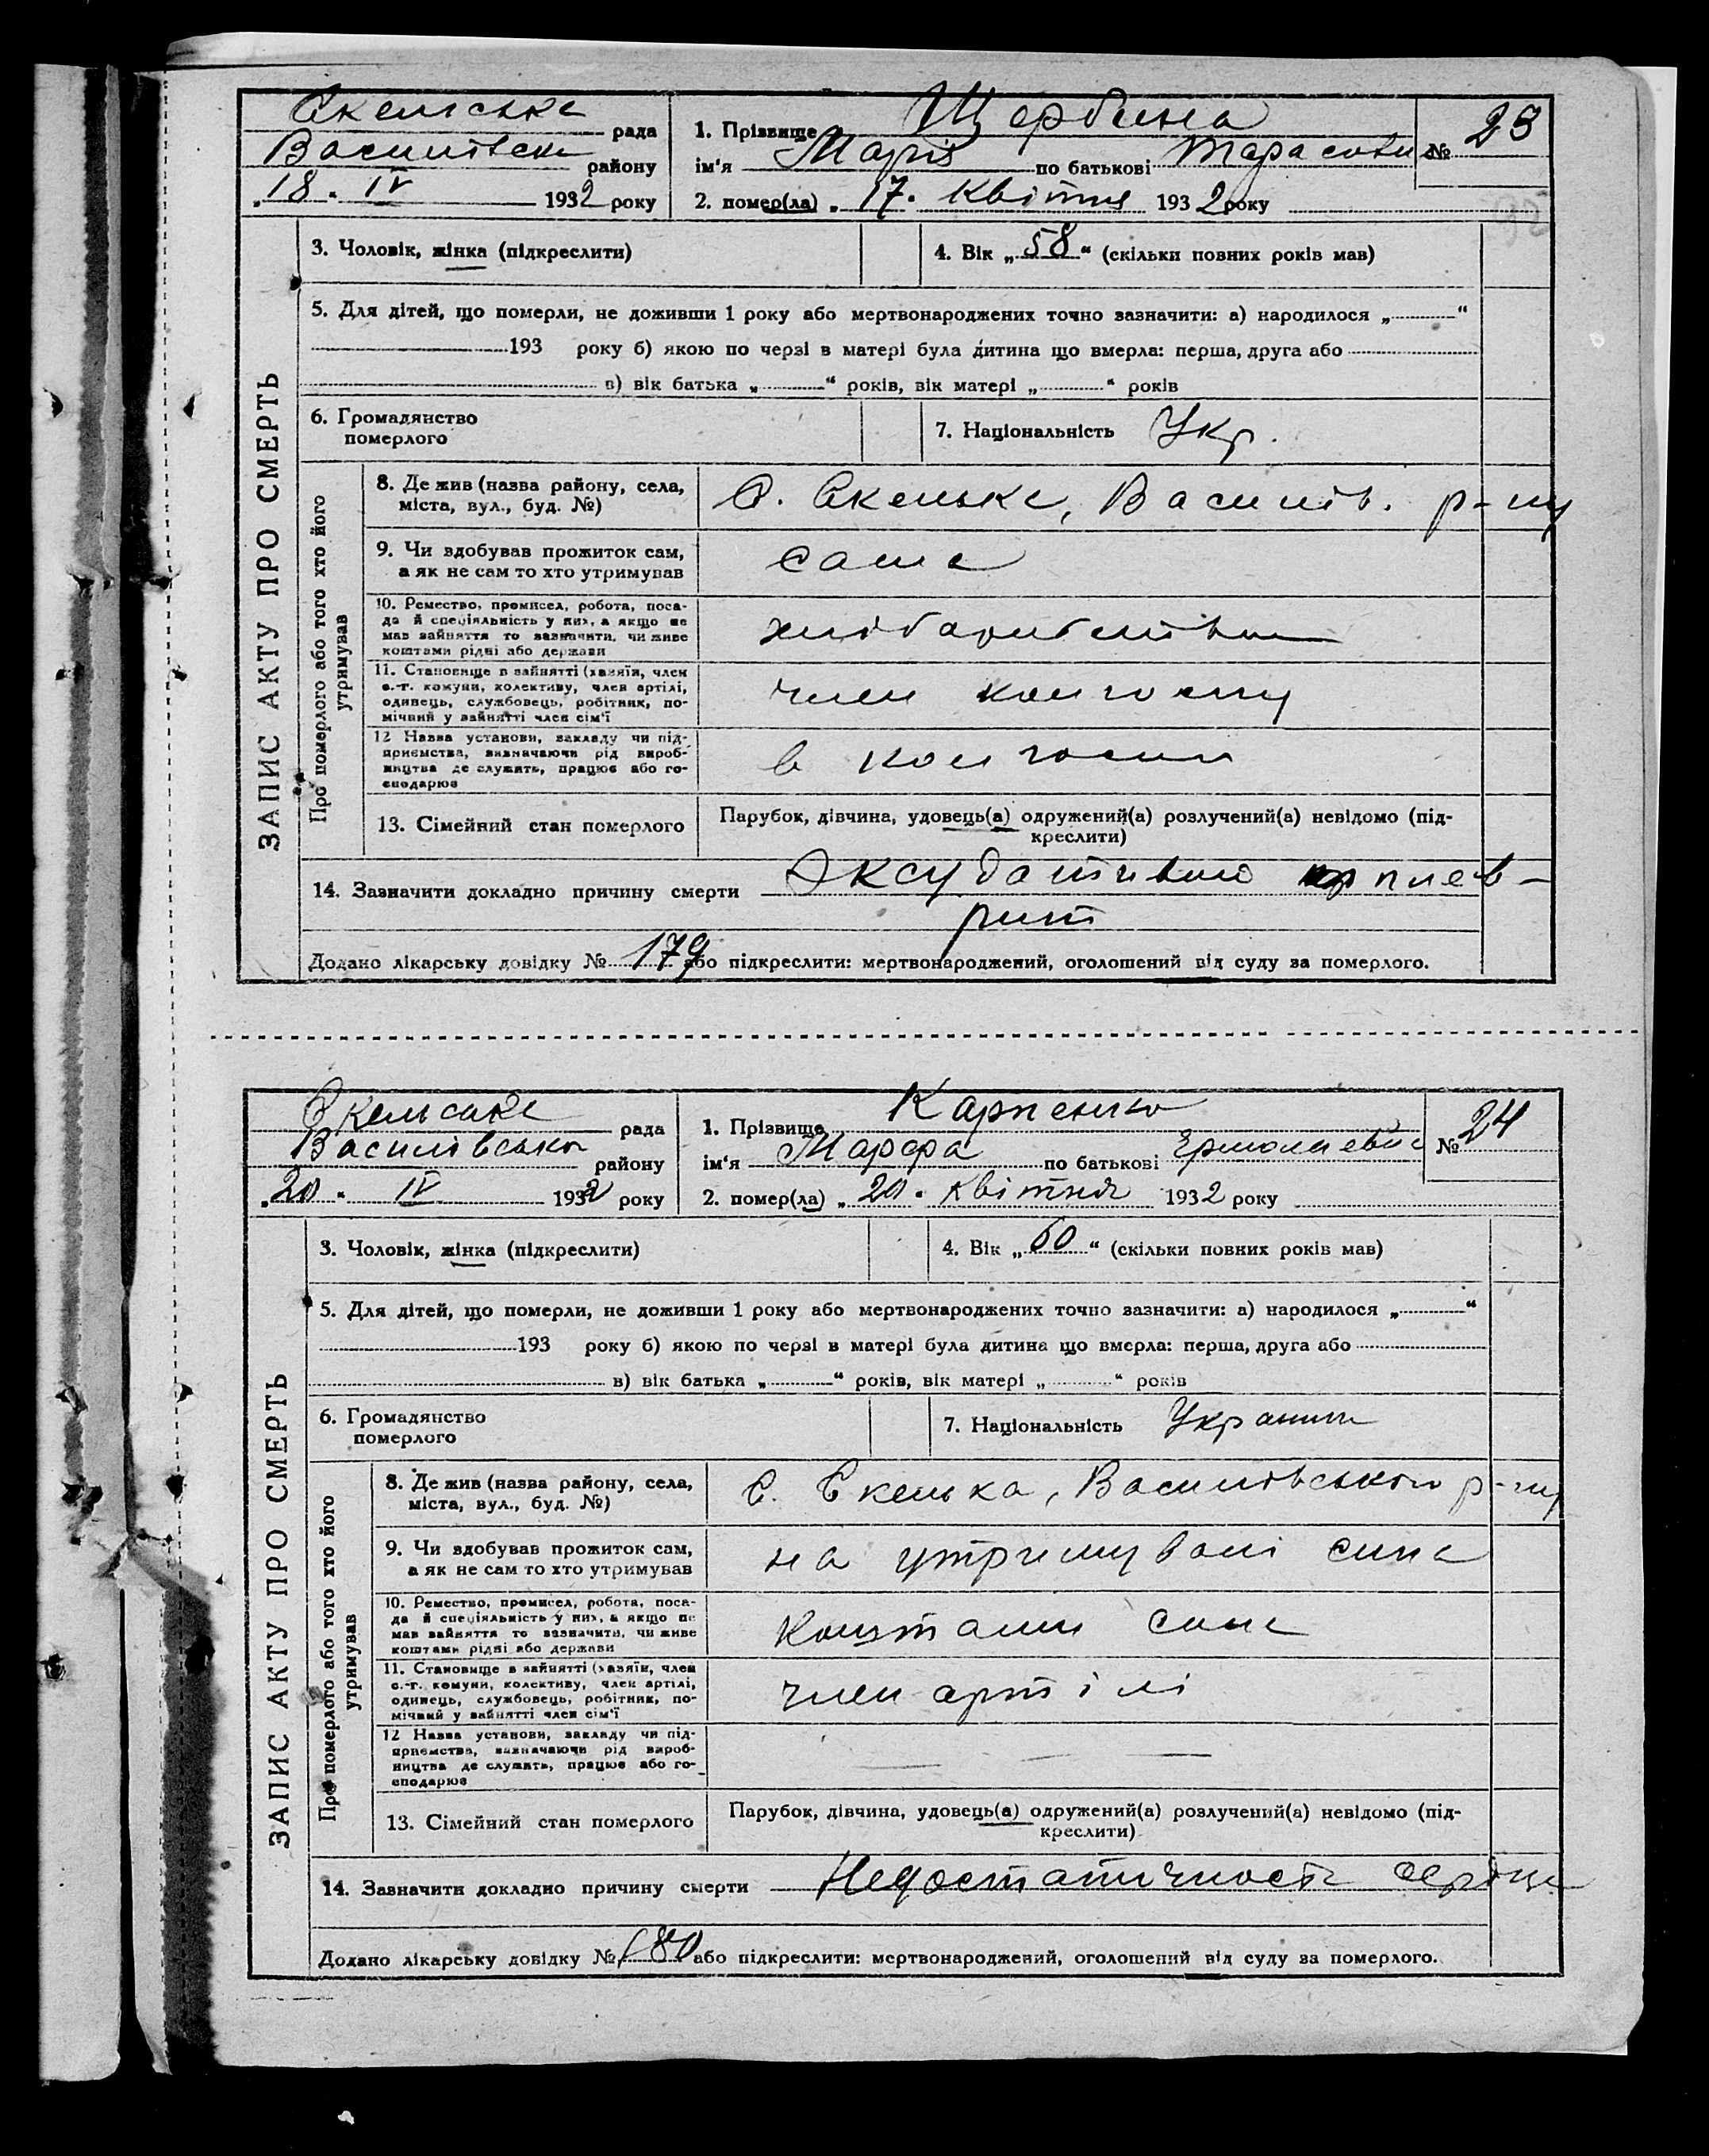 Скельська рада
Василівськ району
„18“ IV 1932 року
1. Прізвище Щербина
ім'я Марія по батькові Тарасовн
№ 23
2. помер(ла) „17“ Квітня 1932 року
3. Чоловік, жінка (підкреслити)
4. Вік „58“ (скільки повних років мав)
5. Для дітей, що померли, не доживши 1 року або мертвонароджених точно зазначити: а) народилося „ “
193 року б) якою по черзі в матері була дитина що вмерла: перша, друга або
в) вік батька „ “ років, вік матері „ “ років
6. Громадянство
померлого
7. Національність Укр.
ЗАПИС АКТУ ПРО СМЕРТЬ
Про померлого або того хто його
утримував
8. Де жив (назва району, села,
міста, вул., буд. №)
С. Скельке, Василів. р-ну
9. Чи здобував прожиток сам,
а як не сам то хто утримував
сама
10. Ремество, промисел, робота, поса-
да й спеціяльність у них, а якщо не
мав зайняття то зазначити, чи живе
коштами рідні або держави
хліборобством
11. Становище в зайнятті (хазяїн, член
с.-г. комуни, колективу, член артілі,
одинець, службовець, робітник, по-
мічний у зайнятті член сім'ї
член колгоспу
12 Назва установи, закладу чи під-
приємства, визначаючи рід вироб-
ництва де служить, працює або го-
сподарює
в колгоспи
13. Сімейний стан померлого
Парубок, дівчина, удовець(а) одружений(а) розлучений(а) невідомо (під-
креслити)
14. Зазначити докладно причину смерти Эксудативно плев-
рит
Додано лікарську довідку № 179 або підкреслити: мертвонароджений, оголошений від суду за померлого.
Скельська рада
Василівська району
„20“ IV 1932 року
1. Прізвище Карпенко
ім'я Марфа по батькові Ермолаевна
№ 24
2. помер(ла) „20“ квітня 1932 року
3. Чоловік, жінка (підкреслити)
4. Вік „60“ (скільки повних років мав)
5. Для дітей, що померли, не доживши 1 року або мертвонароджених точно зазначити: а) народилося „ “
193 року б) якою по черзі в матері була дитина що вмерла: перша, друга або
в) вік батька „ “ років, вік матері „ “ років
6. Громадянство
померлого
7. Національність
ЗАПИС АКТУ ПРО СМЕРТЬ
Про померлого або того хто його
утримував
8. Де жив (назва району, села,
міста, вул., буд. №)
С. Скелька, Василівського р-ну
9. Чи здобував прожиток сам,
а як не сам то хто утримував
на утримувані сина
10. Ремество, промисел, робота, поса-
да й спеціяльність у них, а якщо не
мав зайняття то зазначити, чи живе
коштами рідні або держави
Коштами сина
11. Становище в зайнятті (хазяїн, член
с.-г. комуни, колективу, член артілі,
одинець, службовець, робітник, по-
мічний у зайнятті член сім'ї
член артілі
12 Назва установи, закладу чи під-
приємства, визначаючи рід вироб-
ництва де служить, працює або го-
сподарює
13. Сімейний стан померлого
Парубок, дівчина, удовець(а) одружений(а) розлучений(а) невідомо (під-
креслити)
14. Зазначити докладно причину смерти Недостатичность серця
Додано лікарську довідку № 180 або підкреслити: мертвонароджений, оголошений від суду за померлого.